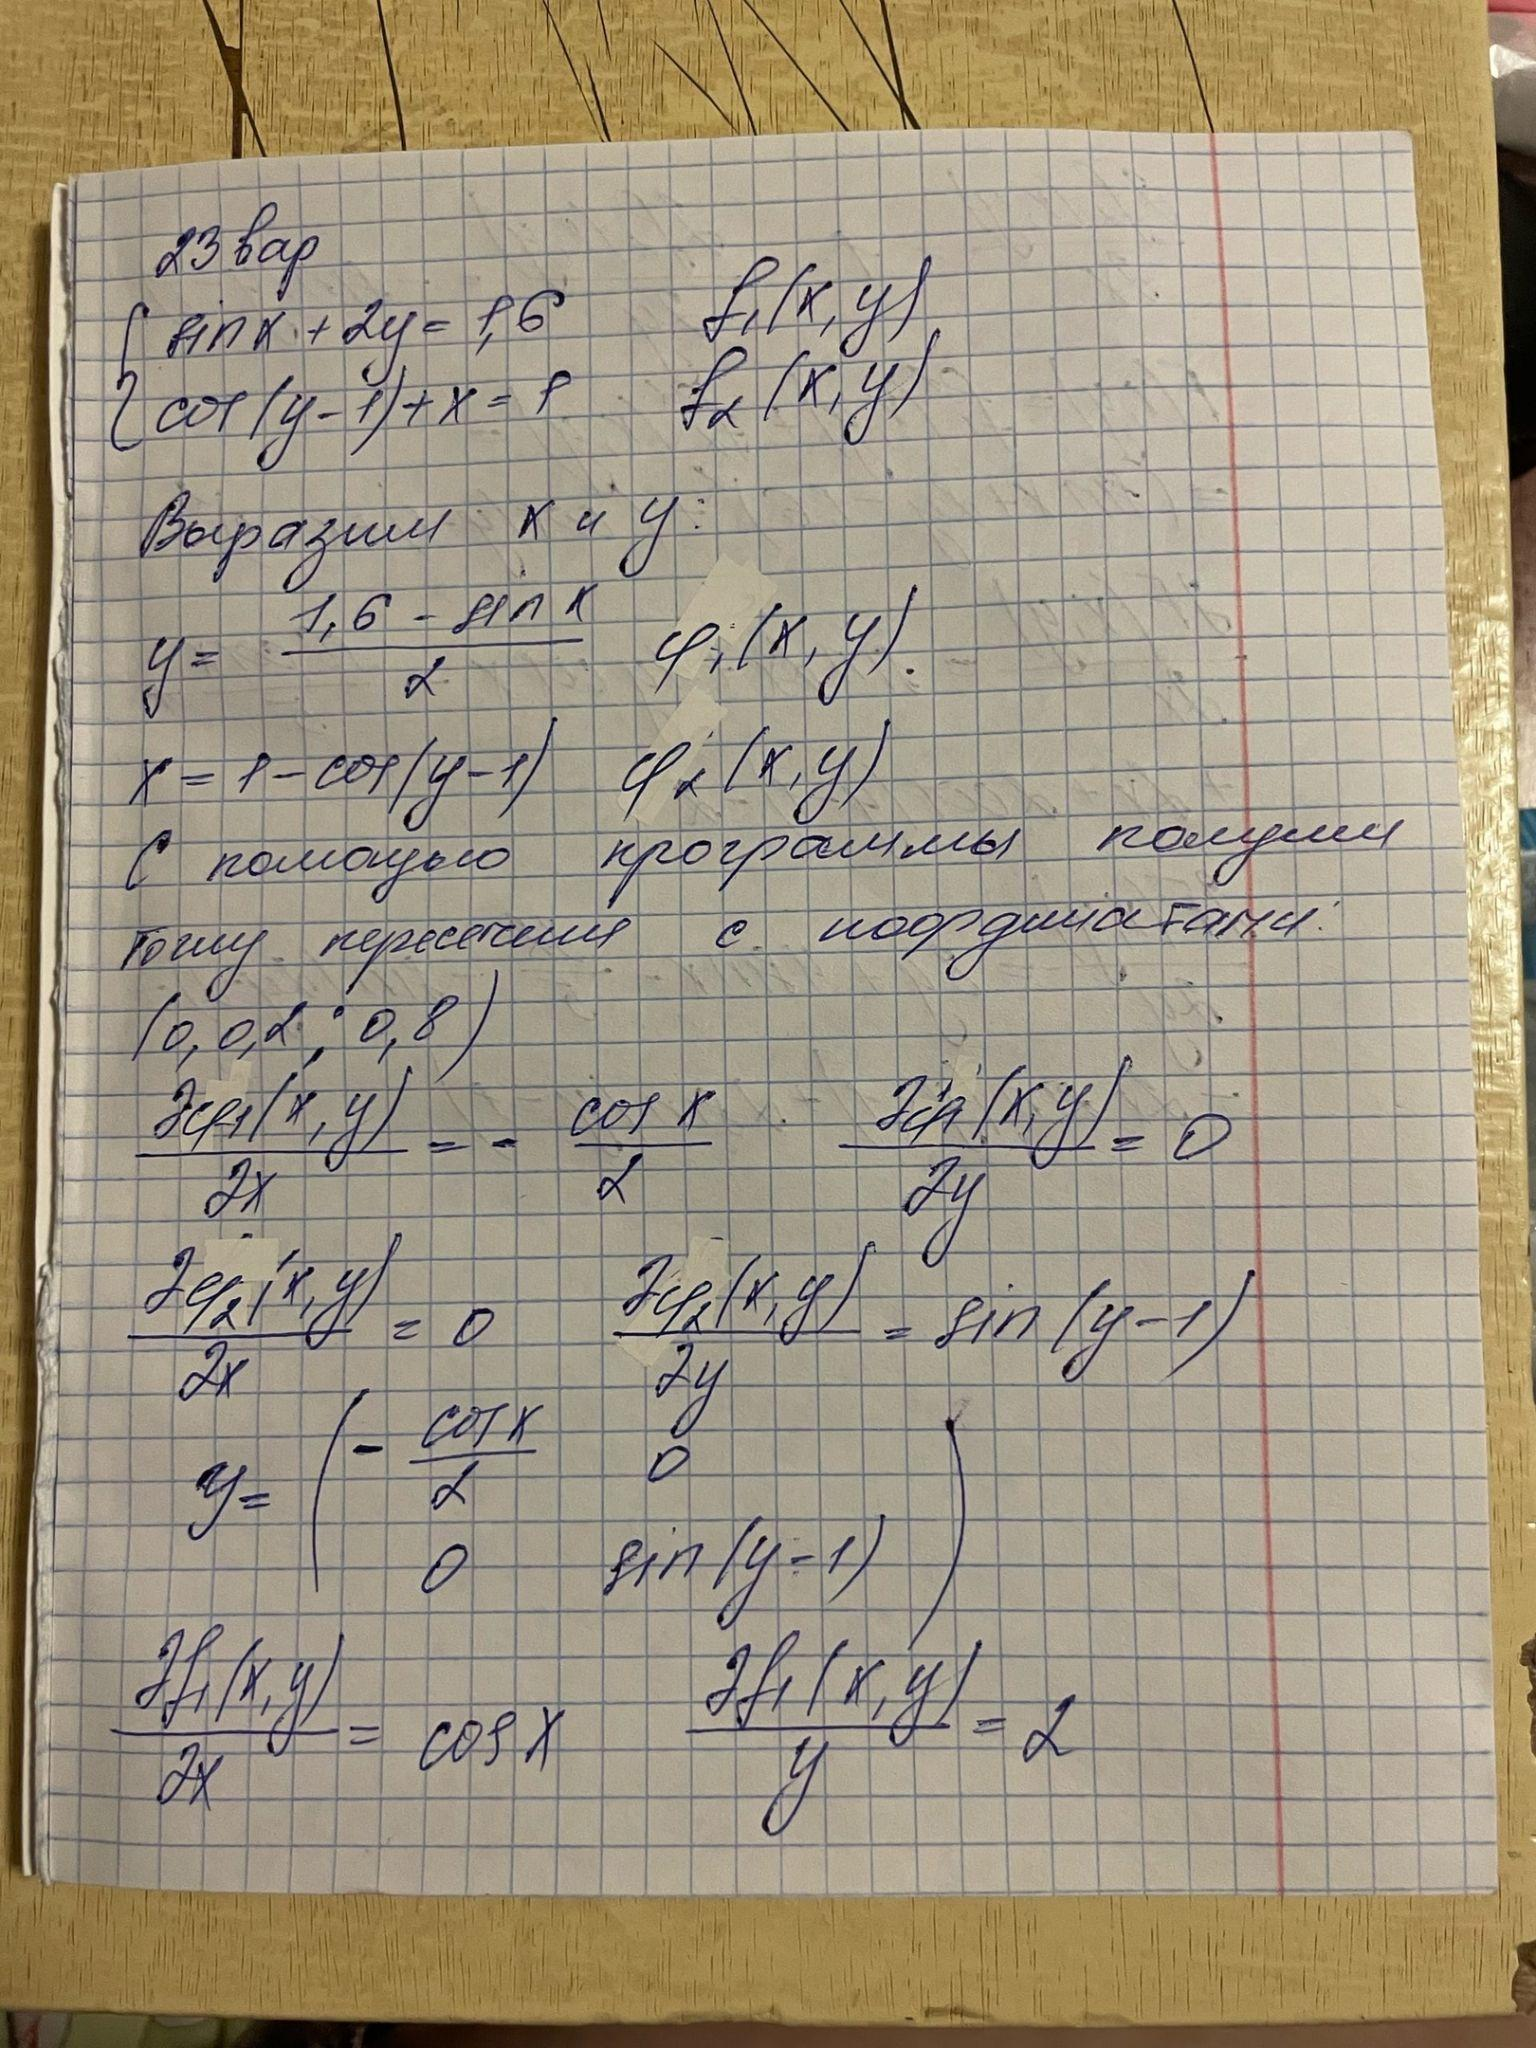 23 вар
sin x + 2y = 1,6 f₁(x, y)
cos(y-1)+x = 1 f₂(x, y)
Выразим x и y:
y = (1,6 - sin x)/2 φ₁(x, y).
x = 1 - cos(y-1) φ₂(x, y)
С помощью программы получим
точку пересечения с координатами:
(0,0,2 ; 0,8)
∂φ₁(x, y)/∂x = - cos x/2 ∂φ₁(x, y)/∂y = 0
∂φ₂(x, y)/∂x = 0 ∂φ₂(x, y)/∂y = sin(y-1)
y = ( - cos x/2 0
0 sin(y-1) )
∂f₁(x, y)/∂x = cos x ∂f₁(x, y)/y = 2